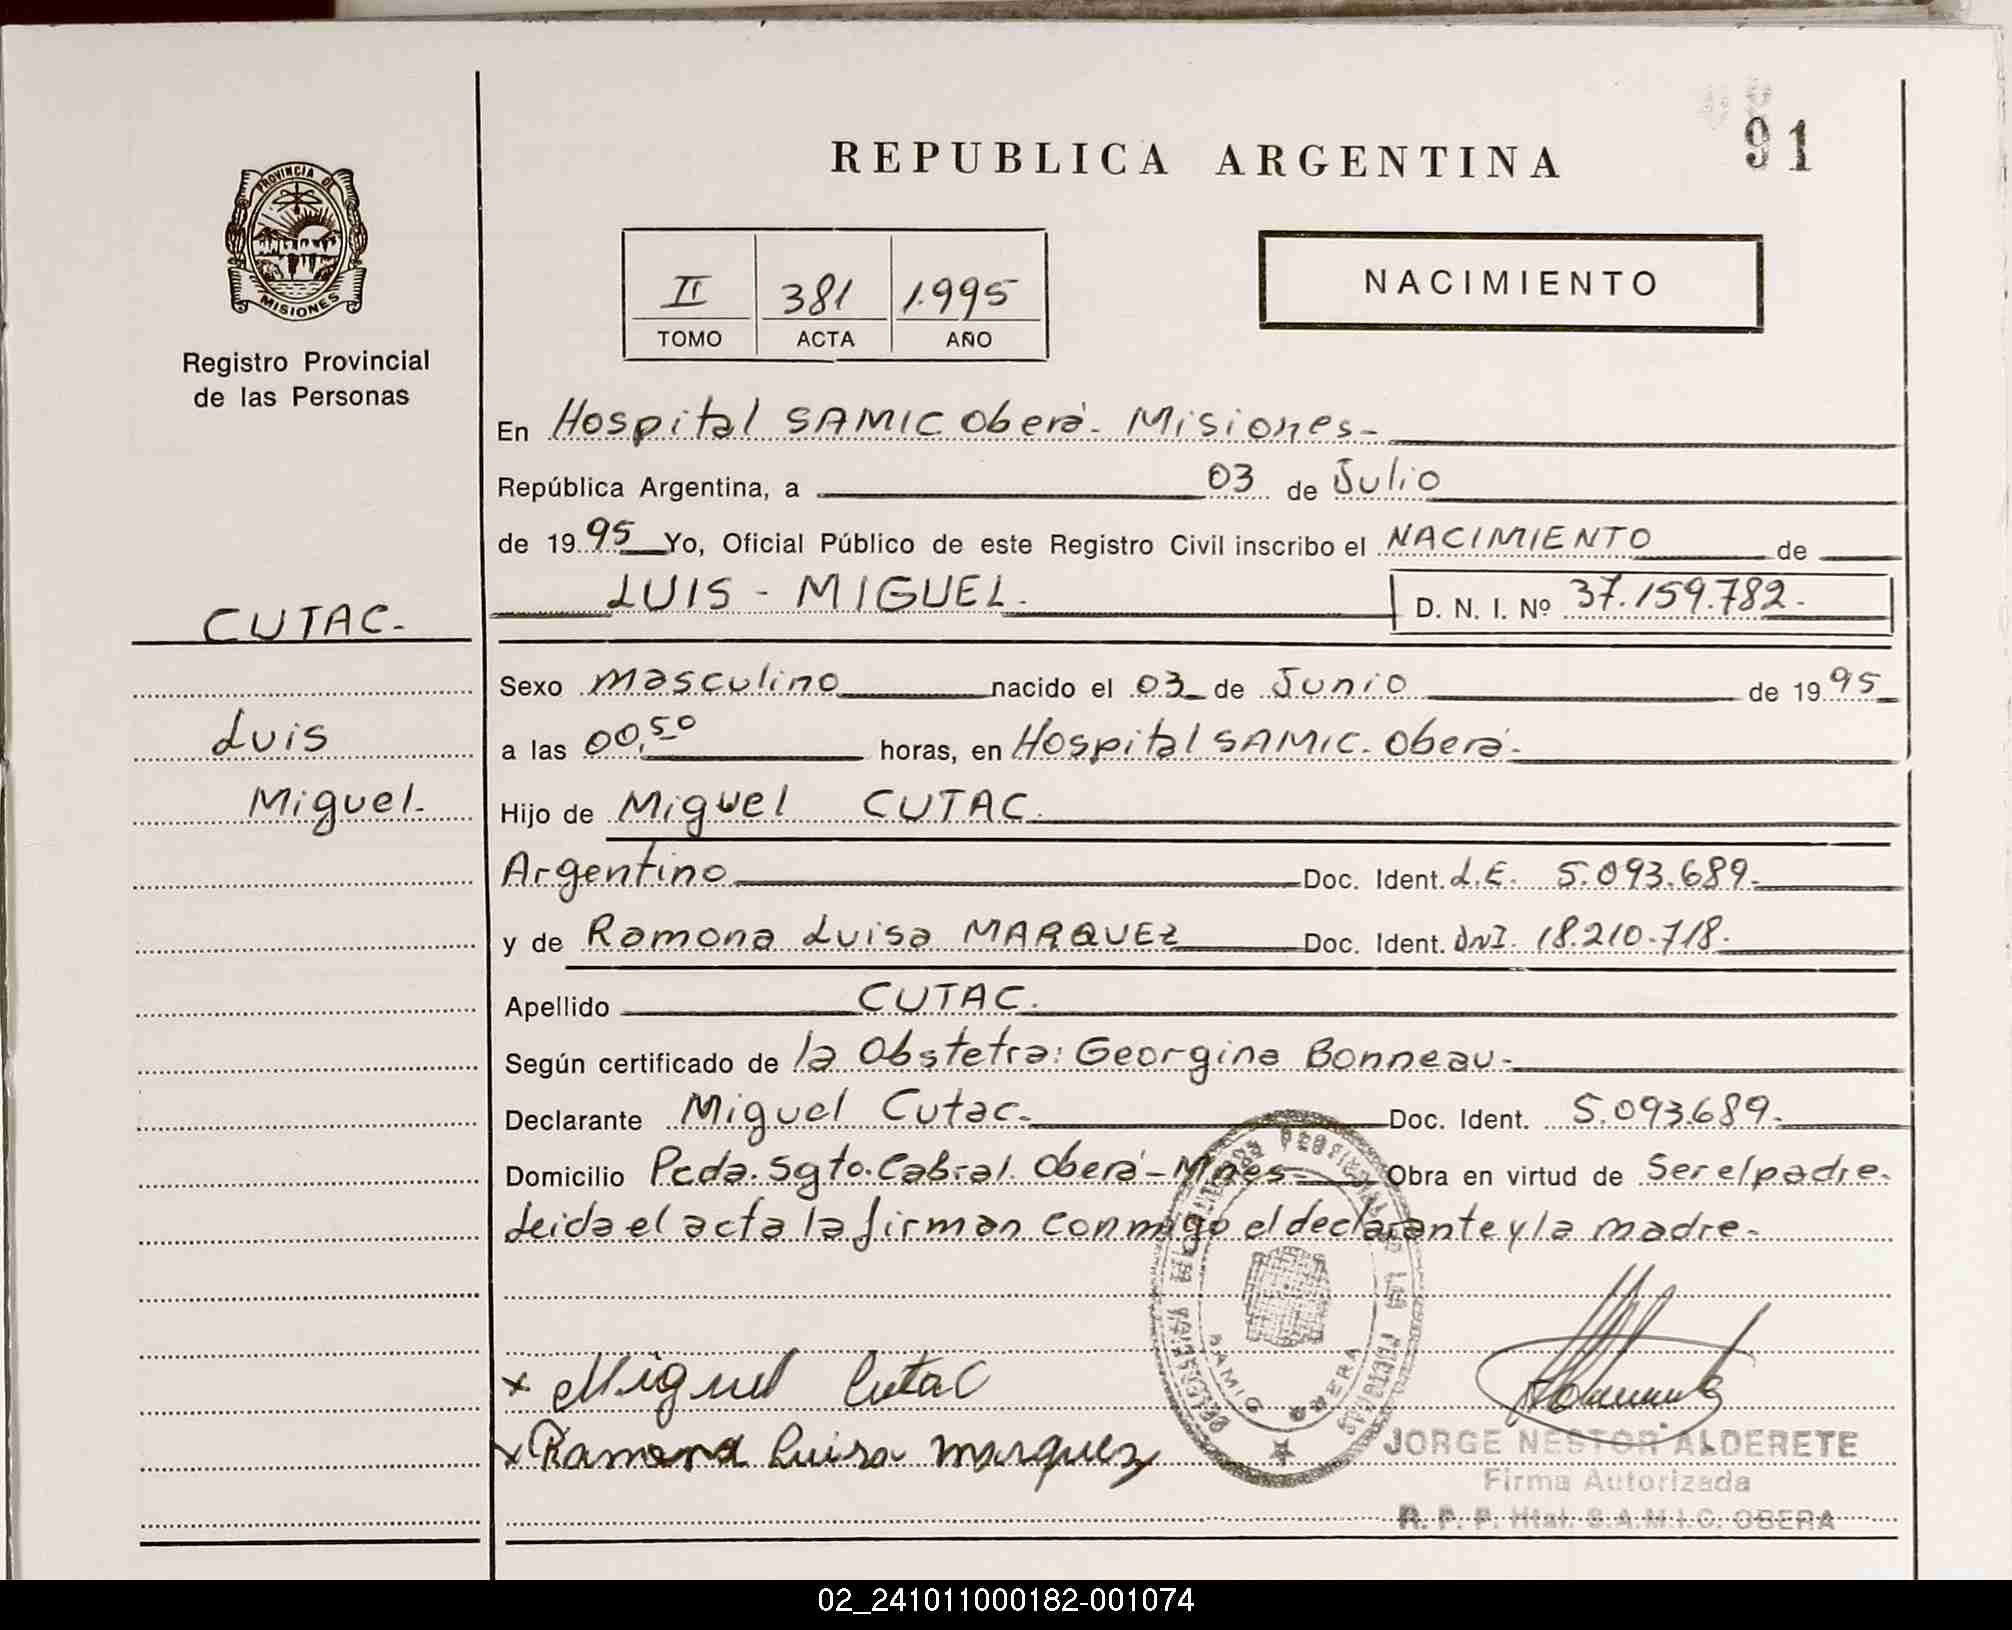 91
REPUBLICA ARGENTINA
PROVINCIA DE
MISIONES
Registro Provincial
de las Personas
II 381 1.995
TOMO ACTA AÑO
NACIMIENTO
En Hospital SAMIC Oberá - Misiones -
República Argentina, a 03 de Julio
de 1995 Yo, Oficial Público de este Registro Civil inscribo el NACIMIENTO de
LUIS - MIGUEL. D. N. I. Nº 37.159.782.-
CUTAC.-
Sexo Masculino nacido el 03 de Junio de 1995
Luis
a las 00,50 horas, en Hospital SAMIC. Oberá.-
Miguel.-
Hijo de Miguel CUTAC.
Argentino Doc. Ident. L.E. 5.093.689.-
y de Ramona Luisa MARQUEZ Doc. Ident. DNI. 18.210.718.-
Apellido CUTAC.
Según certificado de la Obstetra: Georgina Bonneau.-
Declarante Miguel Cutac.- Doc. Ident. 5.093.689.-
Domicilio Pcda. Sgto. Cabral. Oberá - Mnes Obra en virtud de Ser el padre.-
Leida el acta la firman conmigo el declarante y la madre.-
SAMIC OBERA
x Miguel Cutac
x Ramona Luisa Marquez
JORGE NESTOR ALDERETE
Firma Autorizada
R. P. P. Htal. S.A.M.I.C. OBERA
02_241011000182-001074